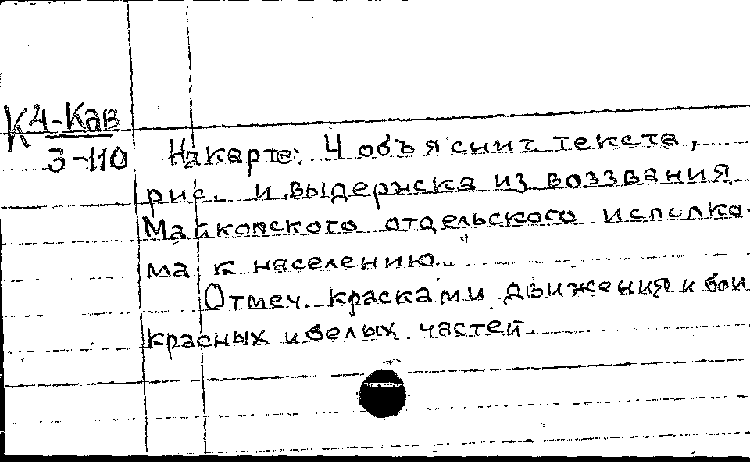 К4-Кав
3-110
На карте: 4 объяснит. текста,
рис. и выдержска из воззвания
Майкопского отдельского исполко-
ма к населению.
Отмеч. красками движения и бои
красных и белых частей.